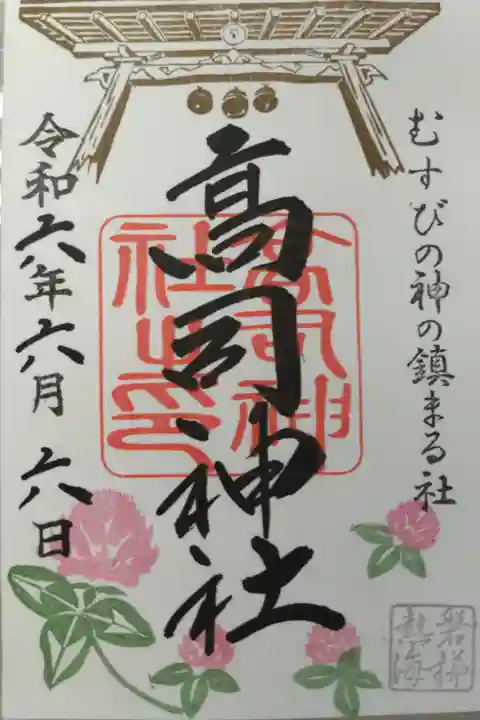 むすびの神の鎮まる社
高司神社
高司神
社之印
令和六年六月六日
磐梯
熱海